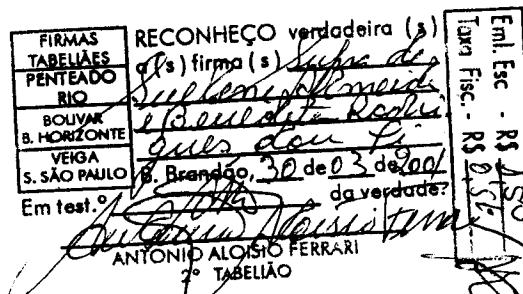 FIRMAS
TABELIÃES
PENTEADO
RIO
BOLIVAR
B. HORIZONTE
VEIGA
S. SÃO PAULO
RECONHEÇO verdadeira (s)
a(s) firma (s) Supra de
Suelene Almeida
e Benedito Rodri
gues dou fé
B. Brandão, 30 de 03 de 2001
Em test.º da verdade?
ANTONIO ALOISIO FERRARI
2º TABELIÃO
Eml. Esc - R$
Taxa Fisc. - R$